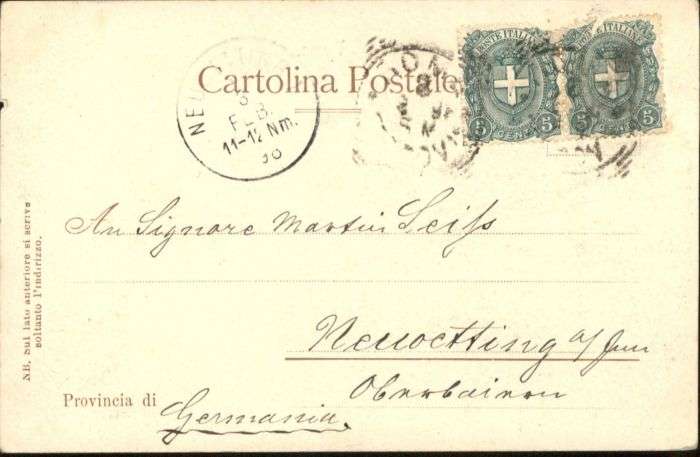 Cartolina Postale
POSTE ITALIANE
5 CENT. 5
5 CENT. 5
ROMA
8
FEB.
11-12 Nm.
An Signore Martin Seiß
Neuoetting a/Inn
Oberbaiern
Provincia di Germania
NB. Sul lato anteriore si scrive
soltanto l'indirizzo.